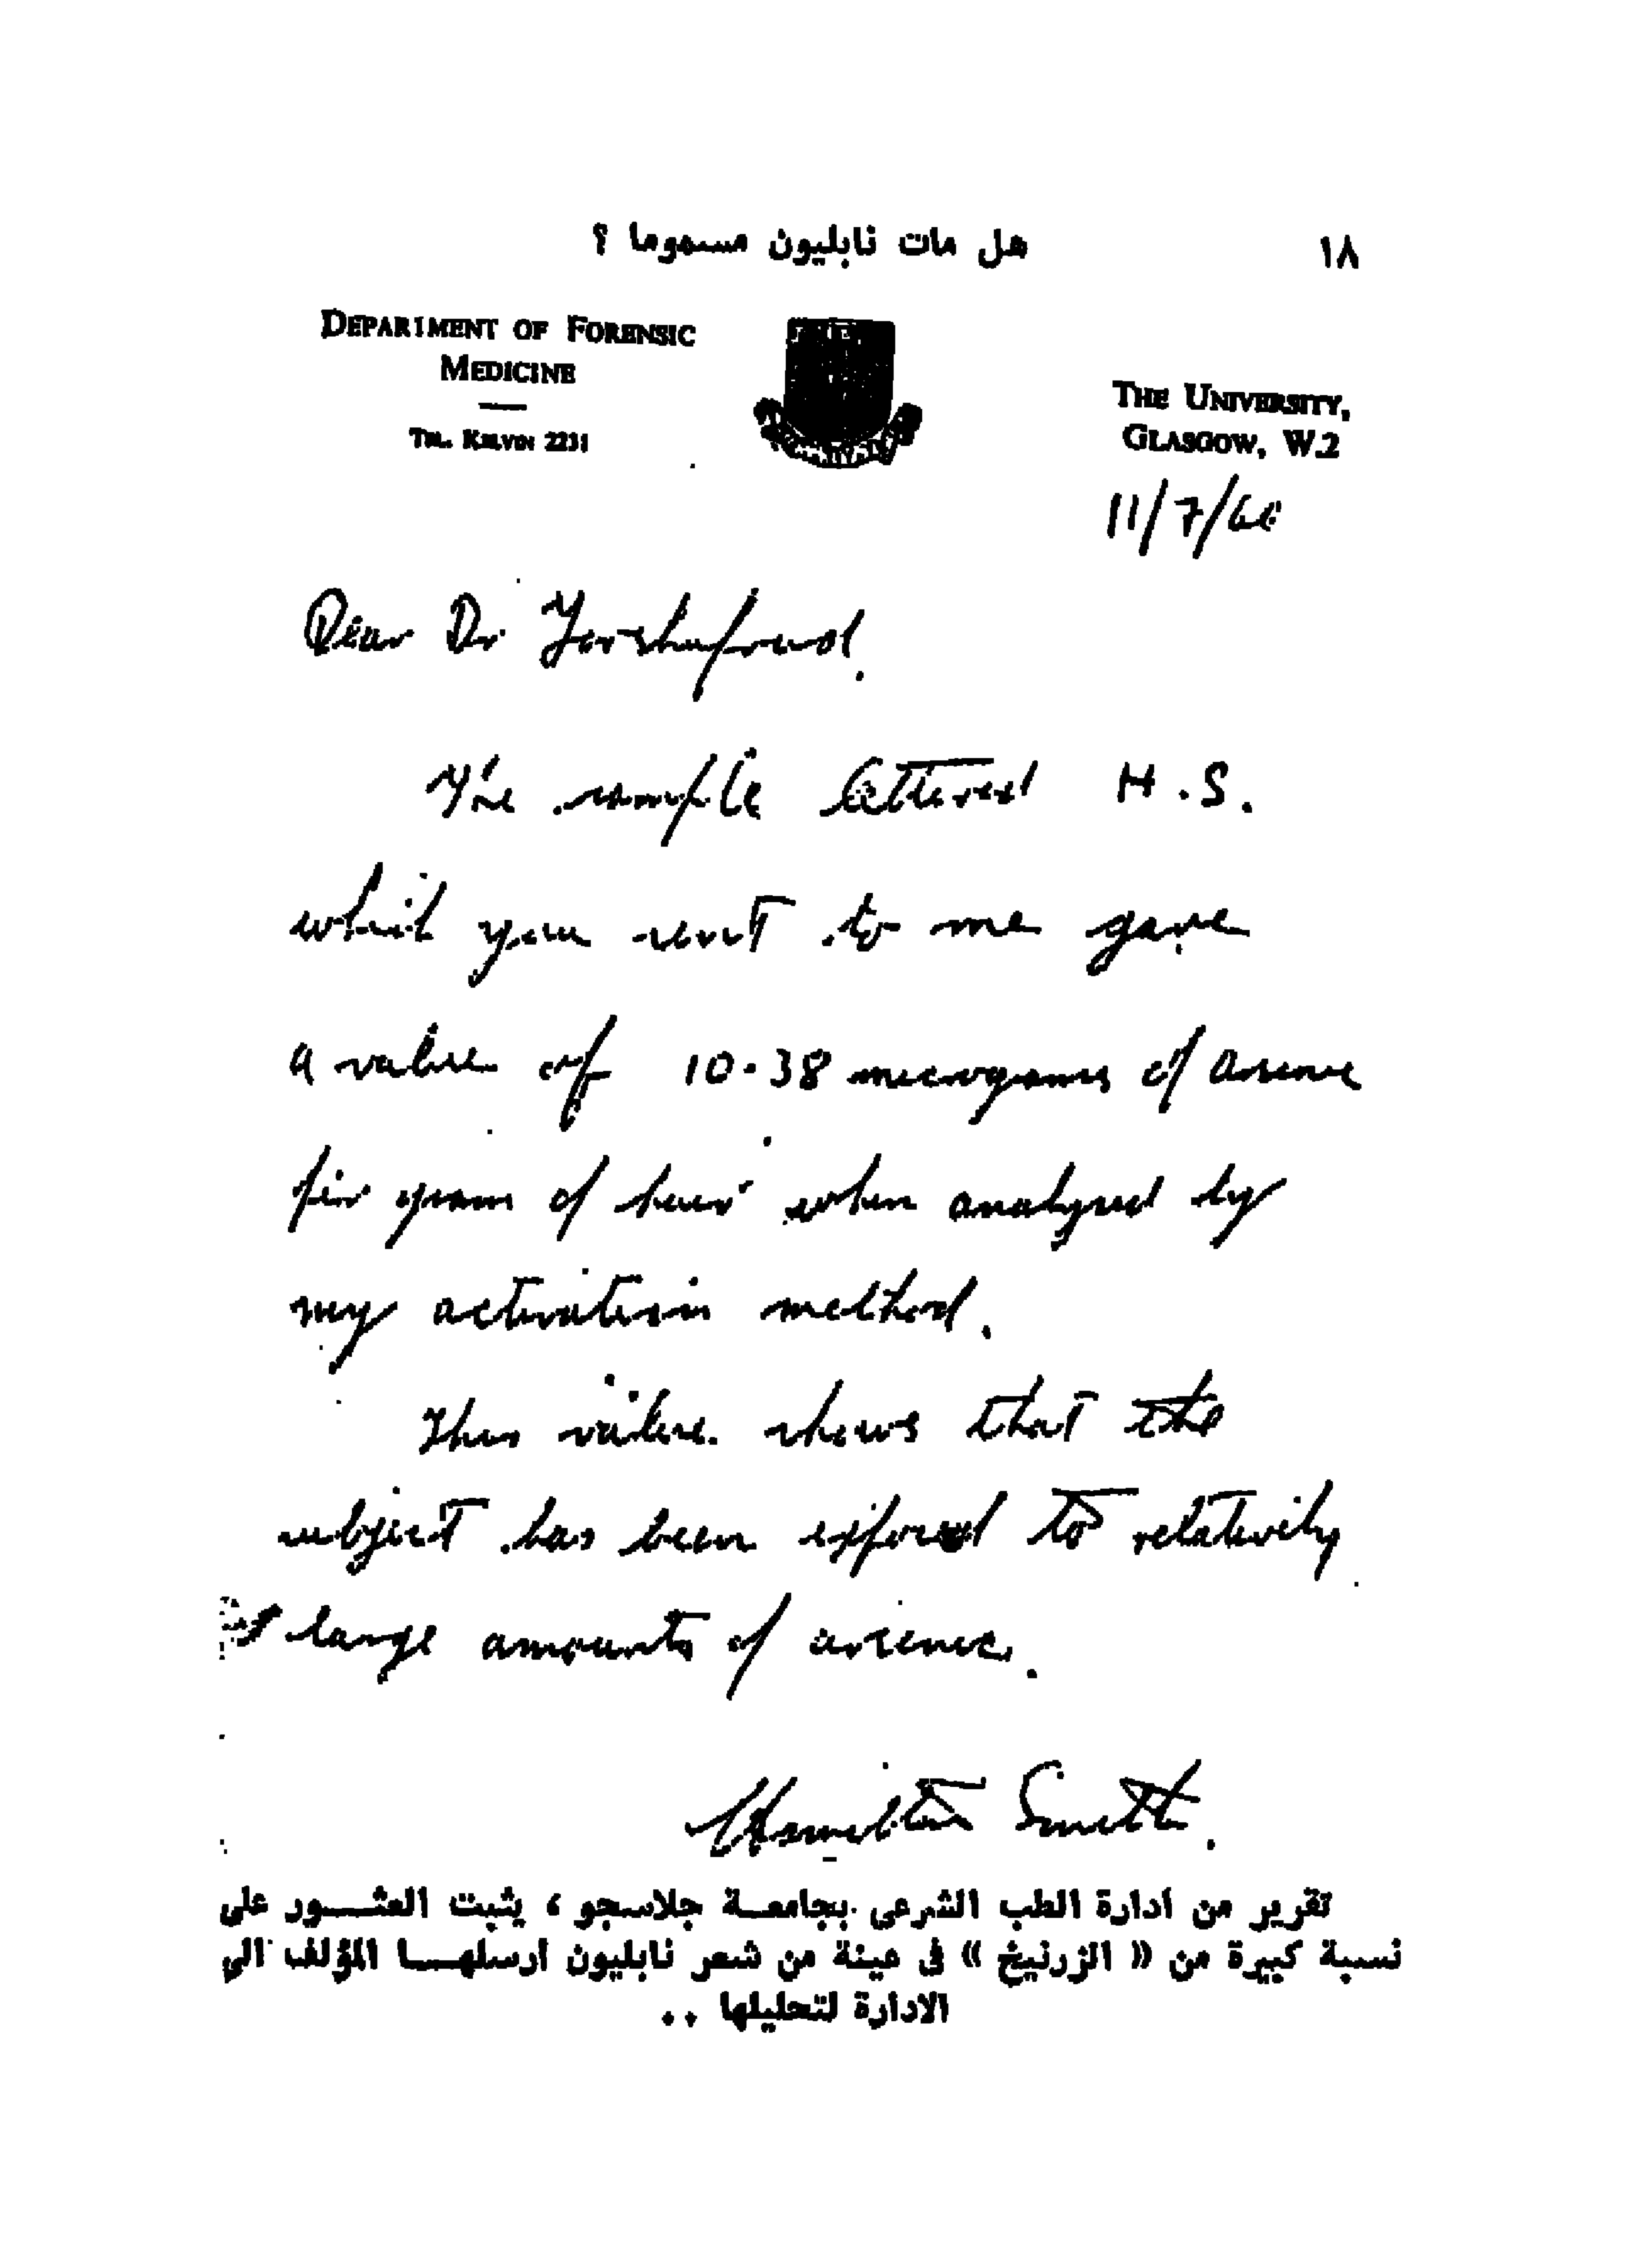 ١٨
هل مات نابليون مسموما ؟
DEPARTMENT OF FORENSIC
MEDICINE
TEL. KELVIN 2231
THE UNIVERSITY,
GLASGOW, W.2
11/7/60
Dear Dr Forshufvud.
The sample lettered H.S.
which you sent to me gave
a value of 10.38 micrograms of arsenic
per gram of hair when analysed by
my activation method.
This value shows that the
subject has been exposed to relatively
large amounts of arsenic.
Hamilton Smith.
تقرير من ادارة الطب الشرعى بجامعـة جلاسجو ، يثبت العثـــور على
نسبة كبيرة من « الزرنيخ » فى عينة من شعر نابليون أرسلهـــا المؤلف الى
الادارة لتحليلها ..